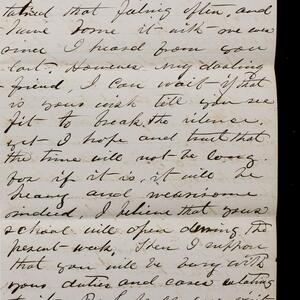 that faling often, and
have some it with me was
since I heard from you
last. However my darling
friend, I can wait if that
is your wish till you see
fit to break the silence,
yet I hope and trust that
the time will not be long
for if it is, it will be
heavy and wearisome
indeed, I believe that your
school will open during the
present week. Then I suppose
that you will be busy with
your duties and cares relating